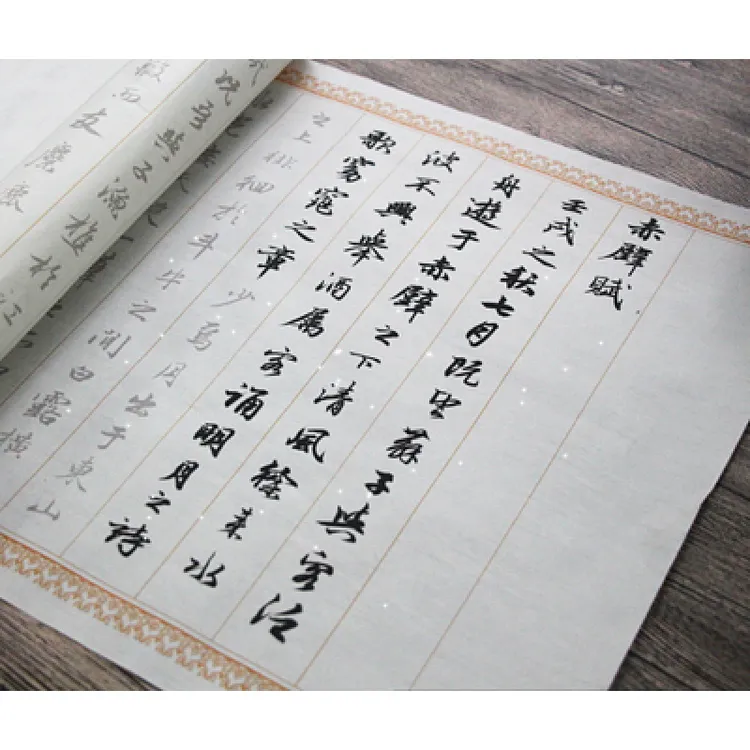 赤壁賦
壬戌之秋七月既望蘇子與客泛
舟遊于赤壁之下清風徐來水
波不興舉酒屬客誦明月之詩
歌窈窕之章少焉月出于東山
之上徘徊於斗牛之間白露橫
況吾與子漁樵於江
而友麋鹿